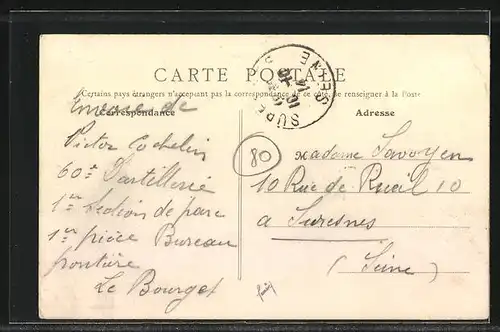 CARTE POSTALE
Certains pays étrangers n'acceptant pas la correspondance de ce côté, se renseigner à la Poste
Correspondance
Envoie de
Victor Cochelin
60e d'artillerie
1ere Section de parc
1ere pièce Bureau
frontière
Le Bourget
80
SEINE
Adresse
Madame Savoyen
10 Rue de Rueil 10
a Suresnes
(Seine)